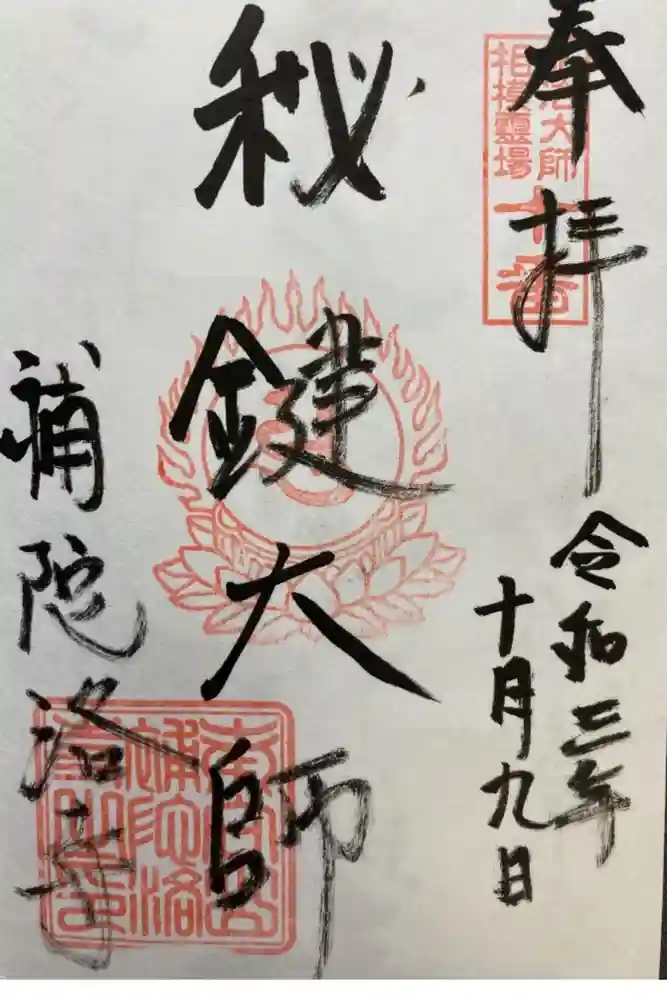 奉拝
大師
相模霊場
十番
令和三年
十月九日
秘鍵大師
補陀洛寺